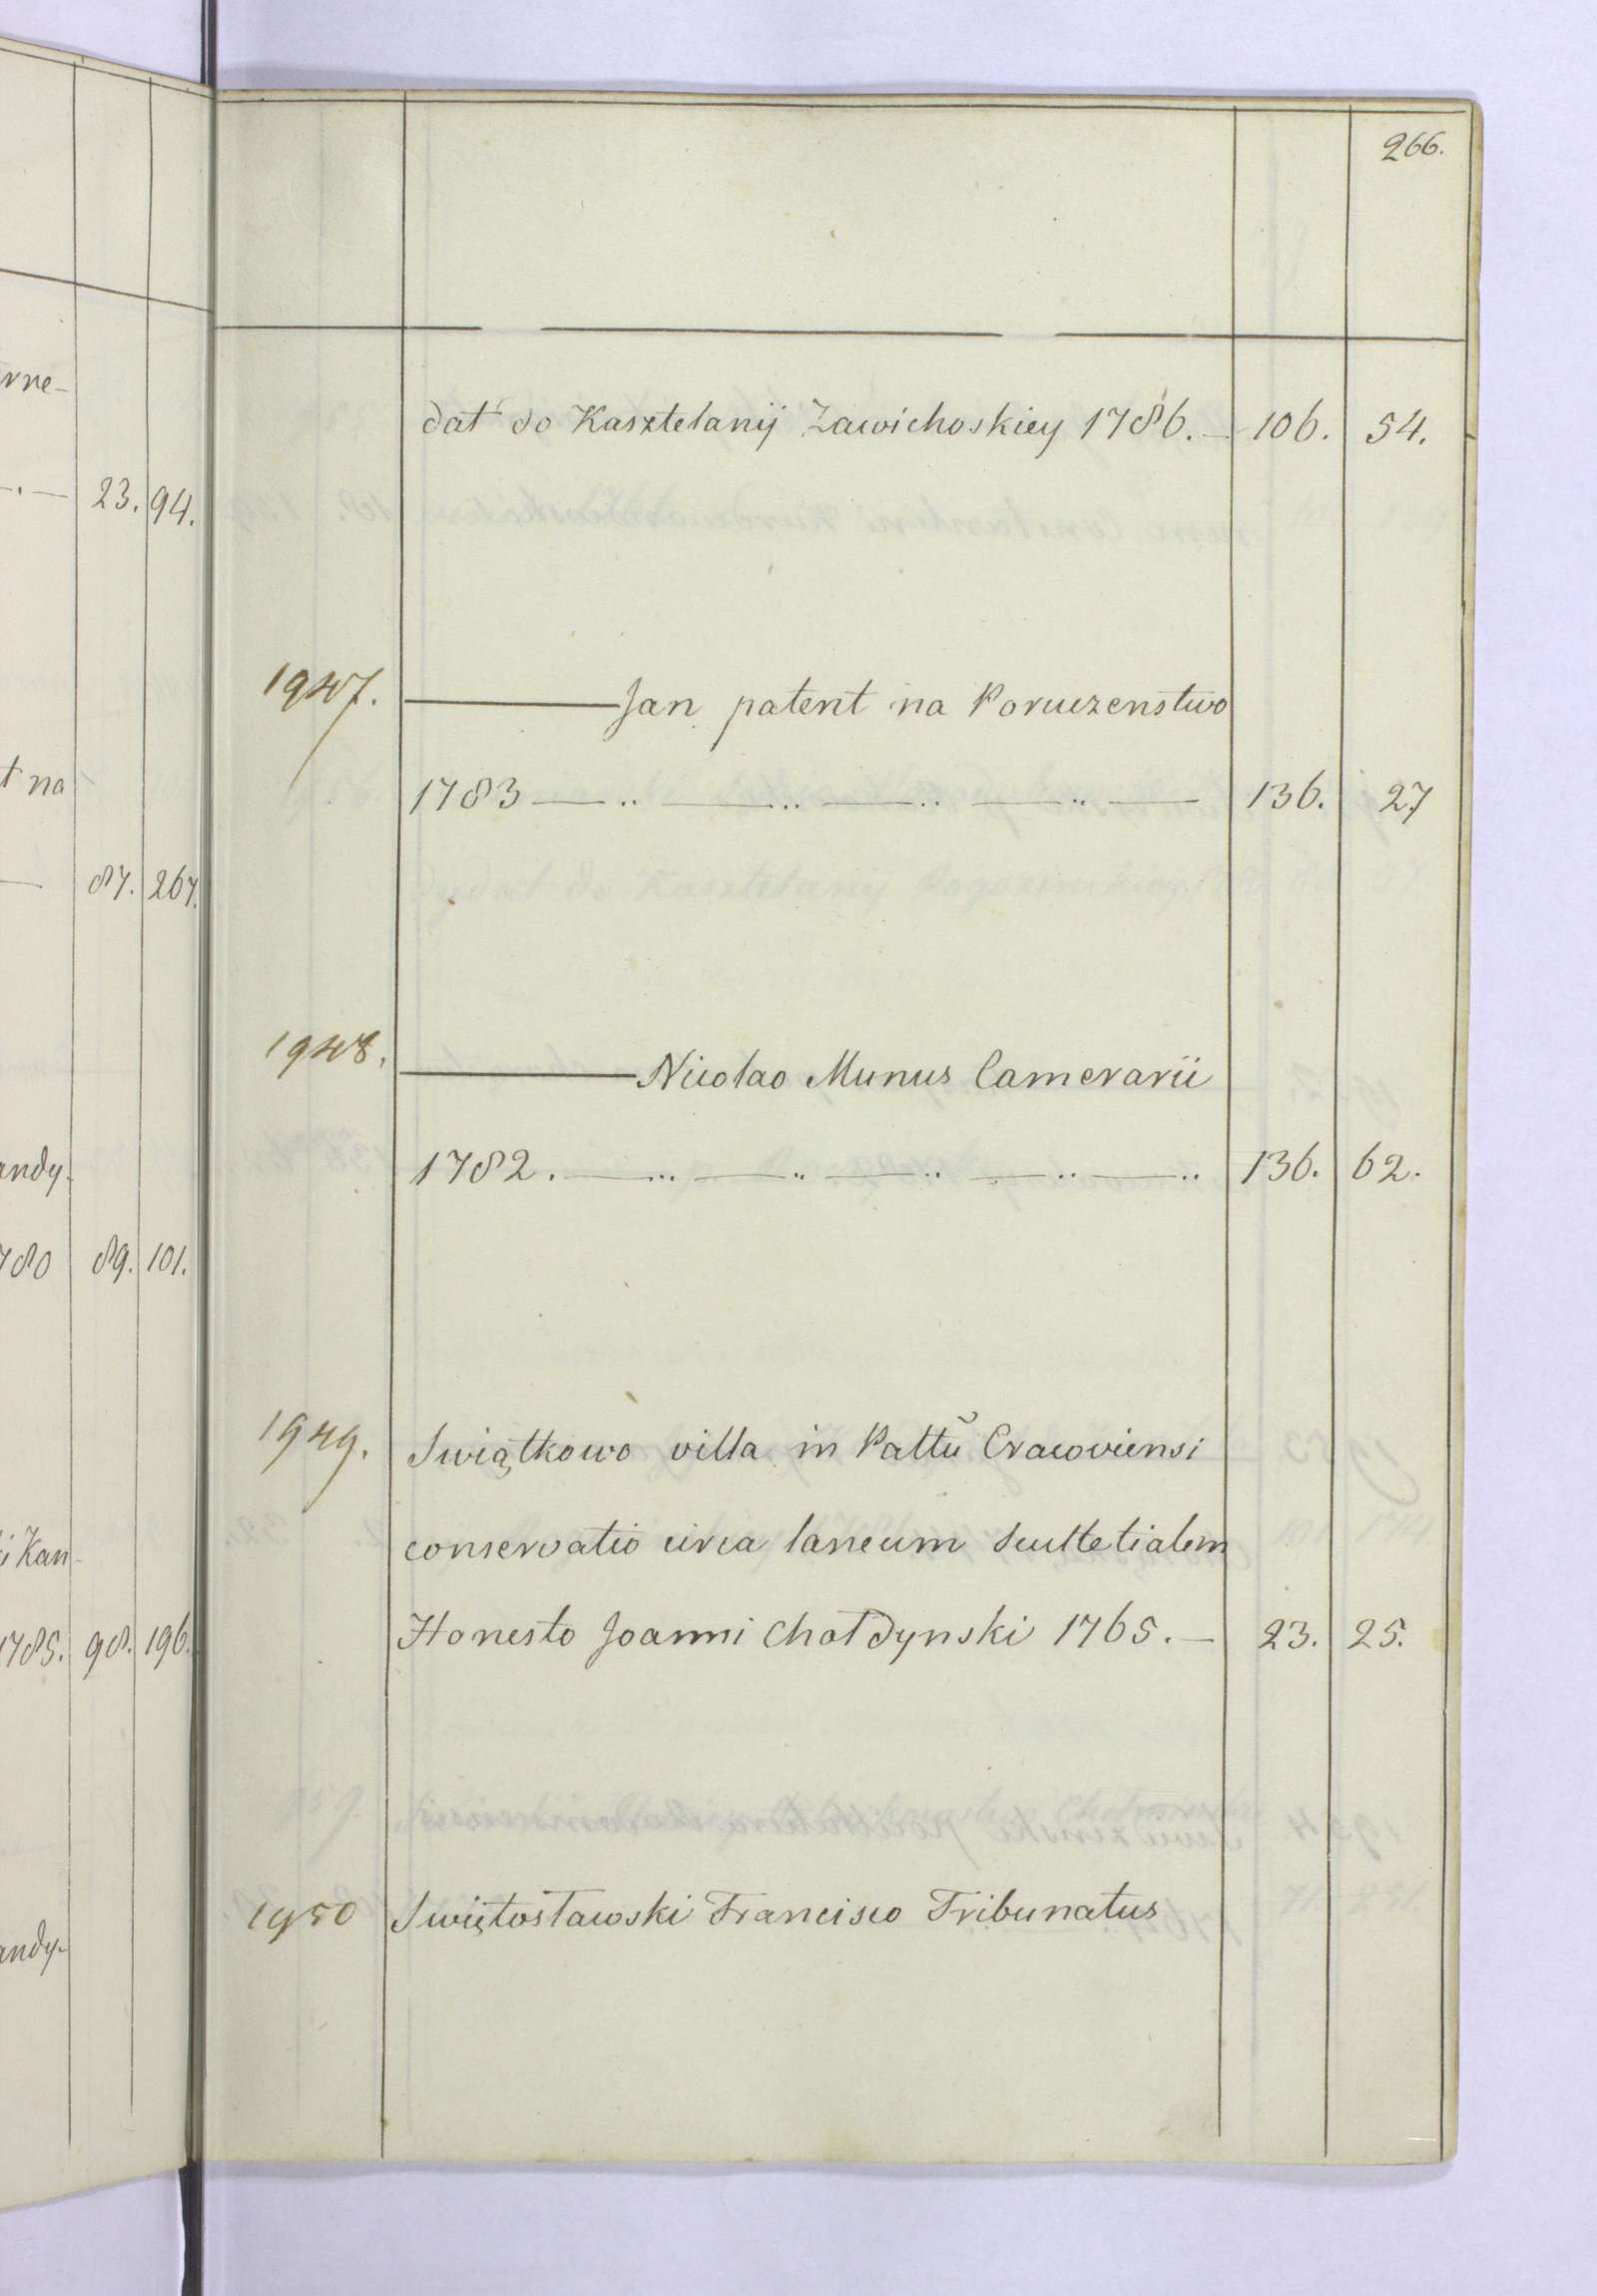 266.
dat do Kasztelanij Zawichoskiey 1786. — 106. 54.
1947. ——— Jan patent na Poruczenstwo
1783 — .. — .. — .. — .. — 136. 27
1948. ——— Nicolao Munus Camerarii
1782. — ... — .. — .. — .. — .. 136. 62.
1949. Swiątkowo villa in Pattũ Cracoviensi
conservatio circa laneum Scultetialem
Honesto Joanni Chołdynski 1765. — 23. 25.
1950 Swiętosławski Francisco Tribunatus
rne-
— . — 23. 94.
t na
— 87. 267.
andy-
780 89. 101.
i Kan-
1785. 98. 196.
andy-